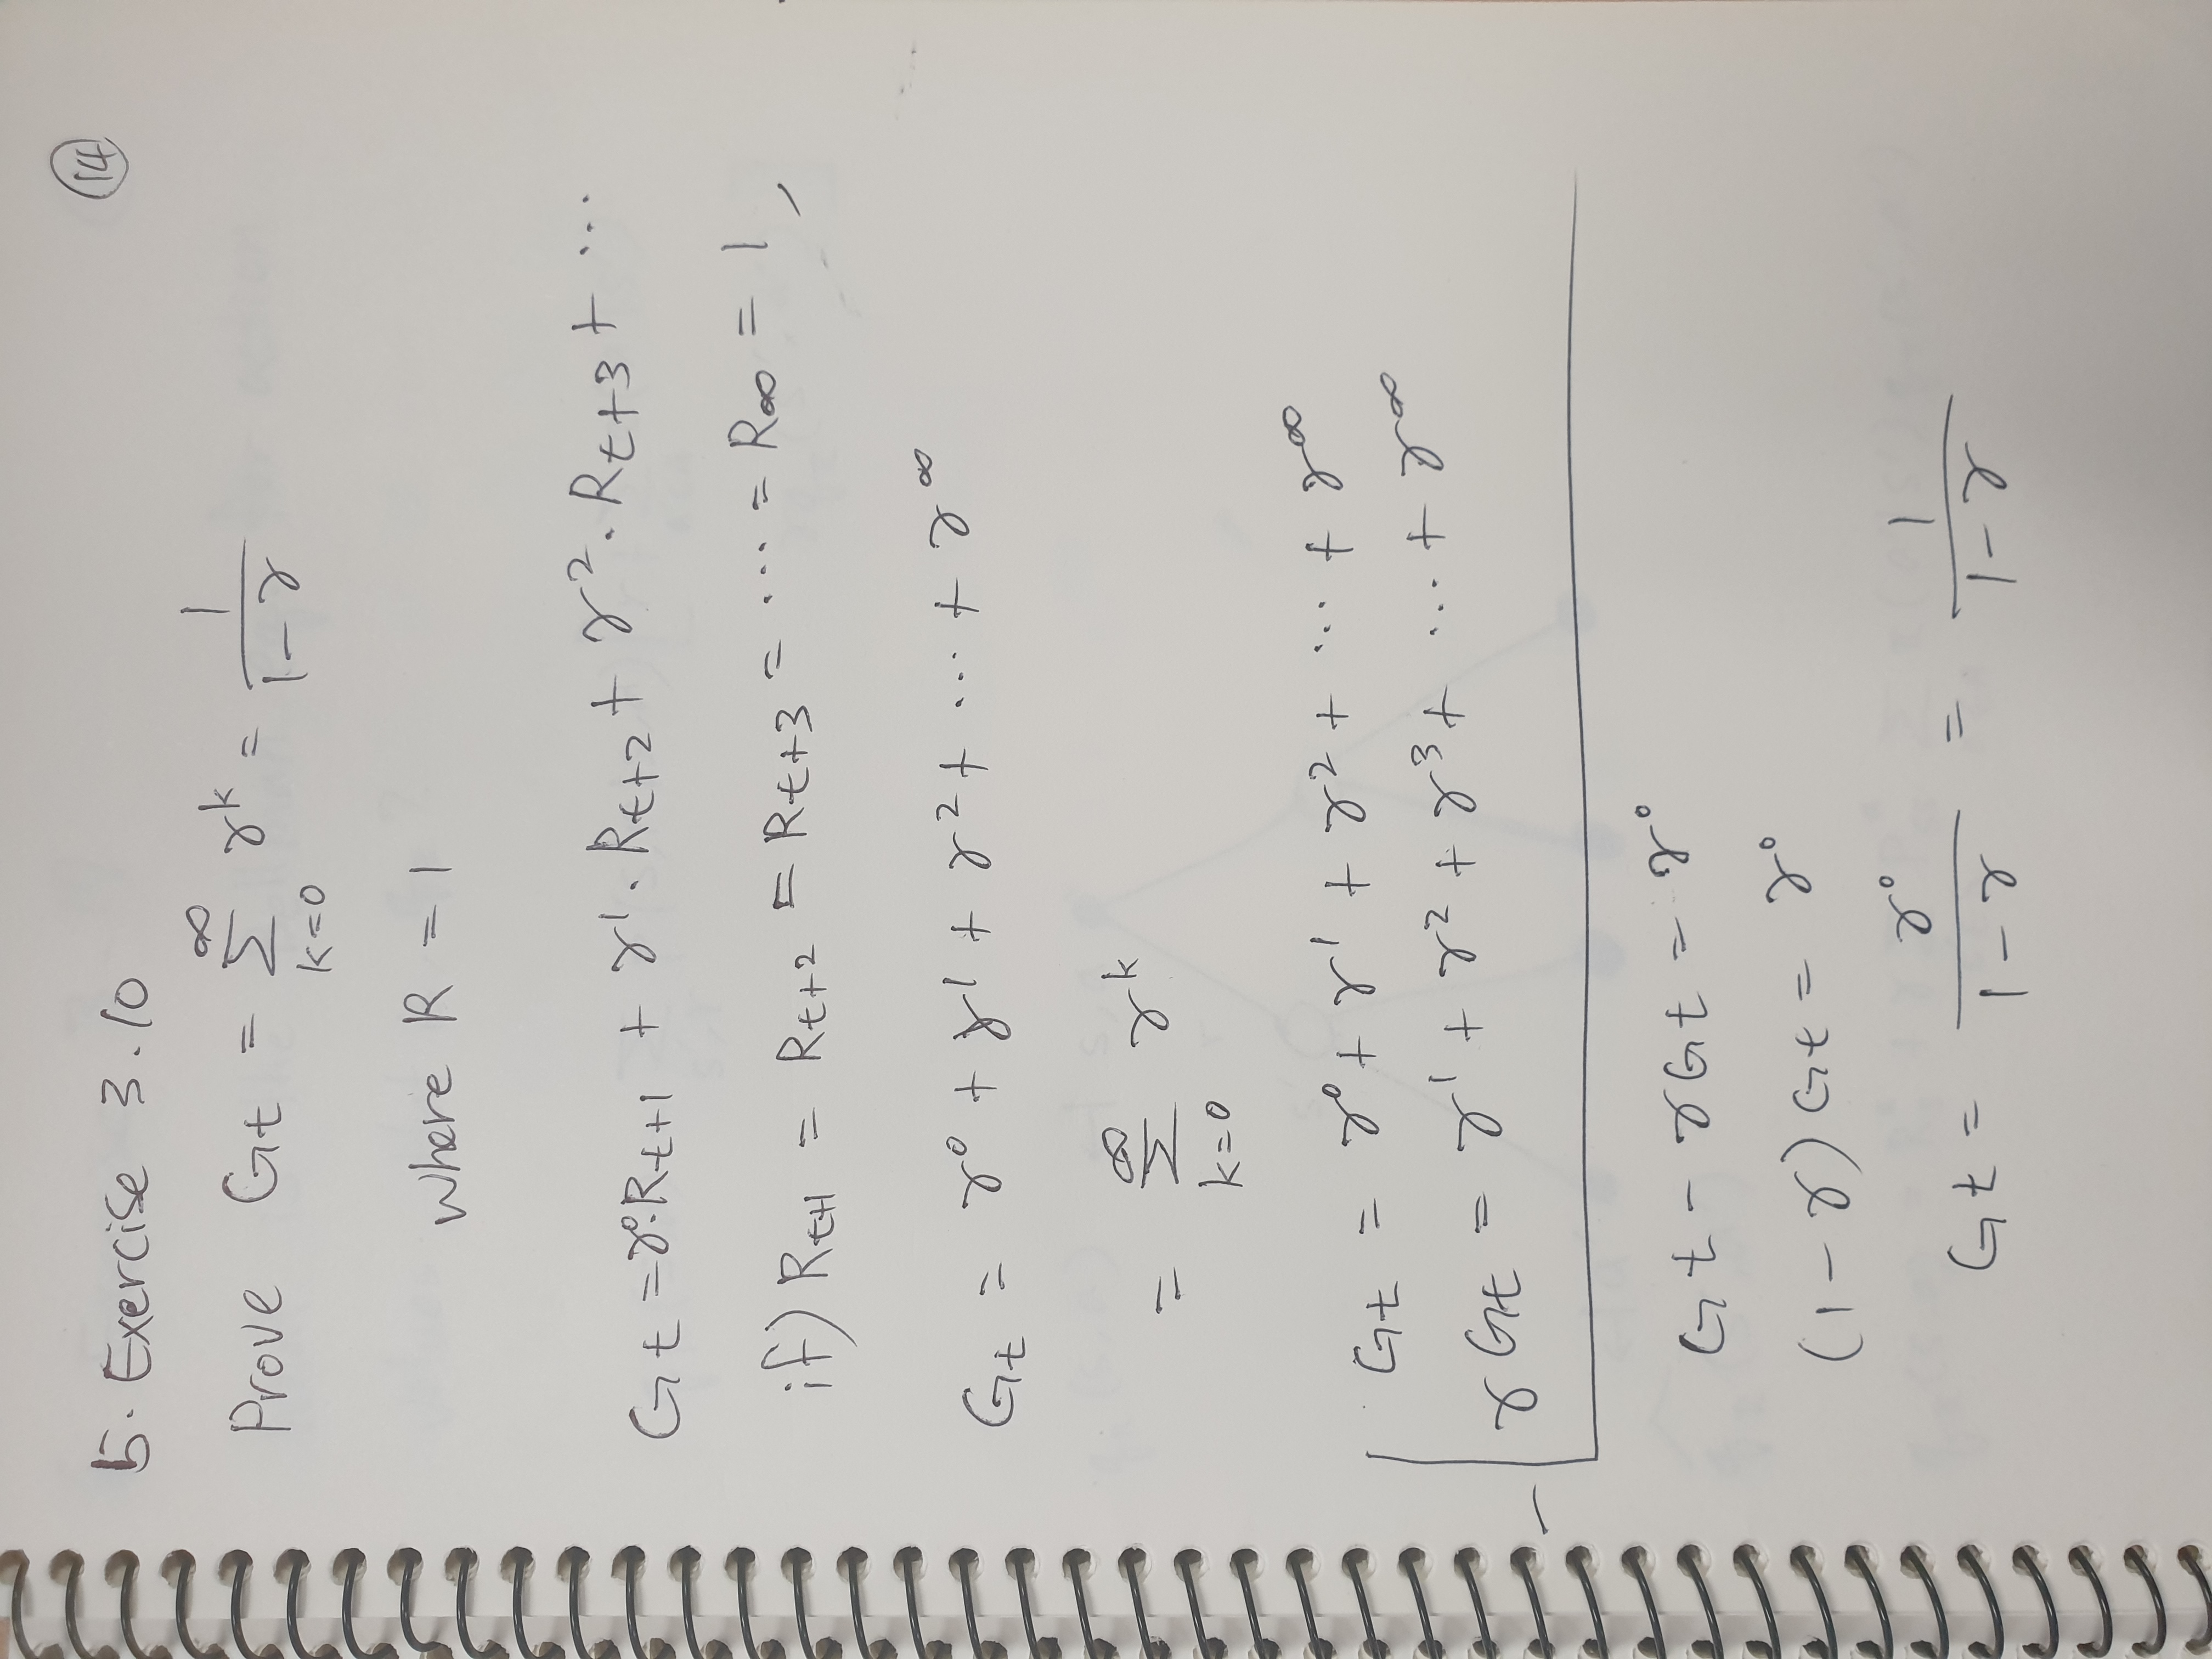 14
5. Exercise 3.10
Prove Gt = ∞∑k=0 γ^k = 1/(1-γ)
where R = 1
Gt = γ^0·Rt+1 + γ^1·Rt+2 + γ^2·Rt+3 + ...
if) Rt+1 = Rt+2 = Rt+3 = ... = R∞ = 1,
Gt = γ^0 + γ^1 + γ^2 + ... + γ^∞
= ∞∑k=0 γ^k
Gt = γ^0 + γ^1 + γ^2 + ... + γ^∞
- γGt = γ^1 + γ^2 + γ^3 + ... + γ^∞
Gt - γGt = γ^0
(1-γ)Gt = γ^0
Gt = γ^0/(1-γ) = 1/(1-γ)